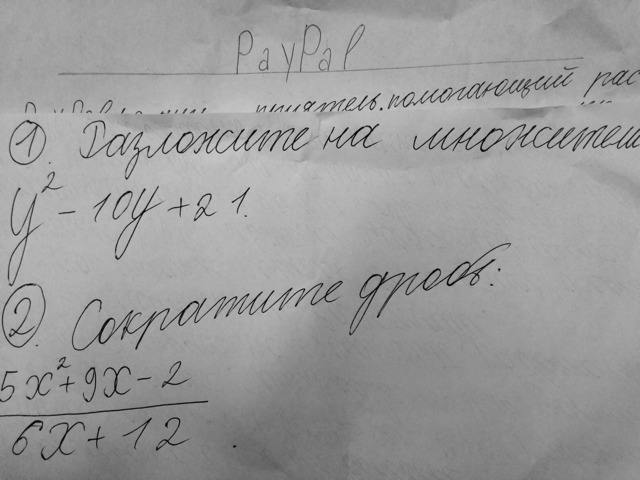 PayPal
приятель, помогающий рас
1. Разложите на множители
y² - 10y + 21.
2. Сократите дробь:
5x² + 9x - 2
6x + 12.